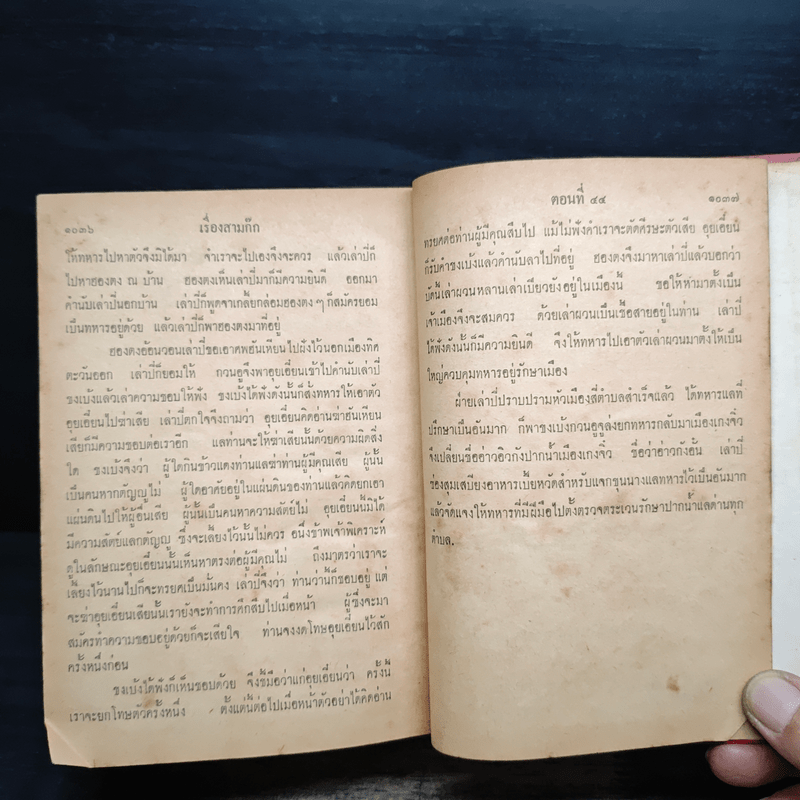 ๑๐๓๖ เรื่องสามก๊ก
ให้ทหารไปหาตัวจึงมิได้มา จำเราจะไปเองจึงจะควร แล้วเล่าปี่ก็
ไปหาฮองตง ณ บ้าน ฮองตงเห็นเล่าปี่มาก็มีความยินดี ออกมา
คำนับเล่าปี่นอกบ้าน เล่าปี่ก็พูดจาเกลี้ยกล่อมฮองตง ๆ ก็สมัครยอม
เป็นทหารอยู่ด้วย แล้วเล่าปี่ก็พาฮองตงมาที่อยู่
ฮองตงอ้อนวอนเล่าปี่ขอเอาศพฮันเหียนไปฝังไว้นอกเมืองทิศ
ตะวันออก เล่าปี่ก็ยอมให้ กวนอูจึงพาอุยเอี๋ยนเข้าไปคำนับเล่าปี่
ขงเบ้งแล้วเล่าความชอบให้ฟัง ขงเบ้งได้ฟังดังนั้นก็สั่งทหารให้เอาตัว
อุยเอี๋ยนไปฆ่าเสีย เล่าปี่ตกใจจึงถามว่า อุยเอี๋ยนคิดอ่านฆ่าฮันเหียน
เสียก็มีความชอบต่อเราอีก แลท่านจะให้ฆ่าเสียนั้นด้วยความผิดสิ่ง
ใด ขงเบ้งจึงว่า ผู้ใดกินข้าวแดงท่านแลฆ่าท่านผู้มีคุณเสีย ผู้นั้น
เป็นคนหากตัญญูไม่ ผู้ใดอาศัยอยู่ในแผ่นดินของท่านแล้วคิดยกเอา
แผ่นดินไปให้ผู้อื่นเสีย ผู้นั้นเป็นคนหาความสัตย์ไม่ อุยเอี๋ยนนี้มิได้
มีความสัตย์แลกตัญญู ซึ่งจะเลี้ยงไว้นั้นไม่ควร อนึ่งข้าพเจ้าพิเคราะห์
ดูในลักษณะอุยเอี๋ยนนั้นเห็นหาตรงต่อผู้มีคุณไม่ ถึงมาตรว่าเราจะ
เลี้ยงไว้นานไปก็จะทรยศเป็นมั่นคง เล่าปี่จึงว่า ท่านว่านี้ก็ชอบอยู่ แต่
จะฆ่าอุยเอี๋ยนเสียนั้นเรายังจะทำการศึกสืบไปเมื่อหน้า ผู้ซึ่งจะมา
สมัครทำความชอบอยู่ด้วยก็จะเสียใจ ท่านจงงดโทษอุยเอี๋ยนไว้สัก
ครั้งหนึ่งก่อน
ขงเบ้งได้ฟังก็เห็นชอบด้วย จึงชี้มือว่าแก่อุยเอี๋ยนว่า ครั้งนี้
เราจะยกโทษตัวครั้งหนึ่ง ตั้งแต่นี้ต่อไปเมื่อหน้าตัวอย่าได้คิดอ่าน
ตอนที่ ๔๔ ๑๐๓๗
ทรยศต่อท่านผู้มีคุณสืบไป แม้ไม่ฟังคำเราจะตัดศีรษะตัวเสีย อุยเอี๋ยน
ก็รับคำขงเบ้งแล้วคำนับลาไปที่อยู่ ฮองตงจึงมาหาเล่าปี่แล้วบอกว่า
บัดนี้เล่าผวนหลานเล่าเปียวยังอยู่ในเมืองนี้ ขอให้หามาตั้งเป็น
เจ้าเมืองจึงจะสมควร ด้วยเล่าผวนเป็นเชื้อสายอยู่ในท่าน เล่าปี่
ได้ฟังดังนั้นก็มีความยินดี จึงให้ทหารไปเอาตัวเล่าผวนมาตั้งให้เป็น
ใหญ่ควบคุมทหารอยู่รักษาเมือง
ฝ่ายเล่าปี่ปราบปรามหัวเมืองสี่ตำบลสำเร็จแล้ว ได้ทหารแลที่
ปรึกษาเป็นอันมาก ก็พาขงเบ้งกวนอูจูล่งยกทหารกลับมาเมืองเกงจิ๋ว
จึงเปลี่ยนชื่ออ่าวอิวกังปากน้ำเมืองเกงจิ๋ว ชื่อว่าอ่าวกังอั๋น เล่าปี่
ซ่องสุมเสบียงอาหารเบี้ยหวัดสำหรับแจกขุนนางแลทหารไว้เป็นอันมาก
แล้วจัดแจงให้ทหารที่มีฝีมือไปตั้งตรวจตระเวนรักษาปากน้ำแลด่านทุก
ตำบล.